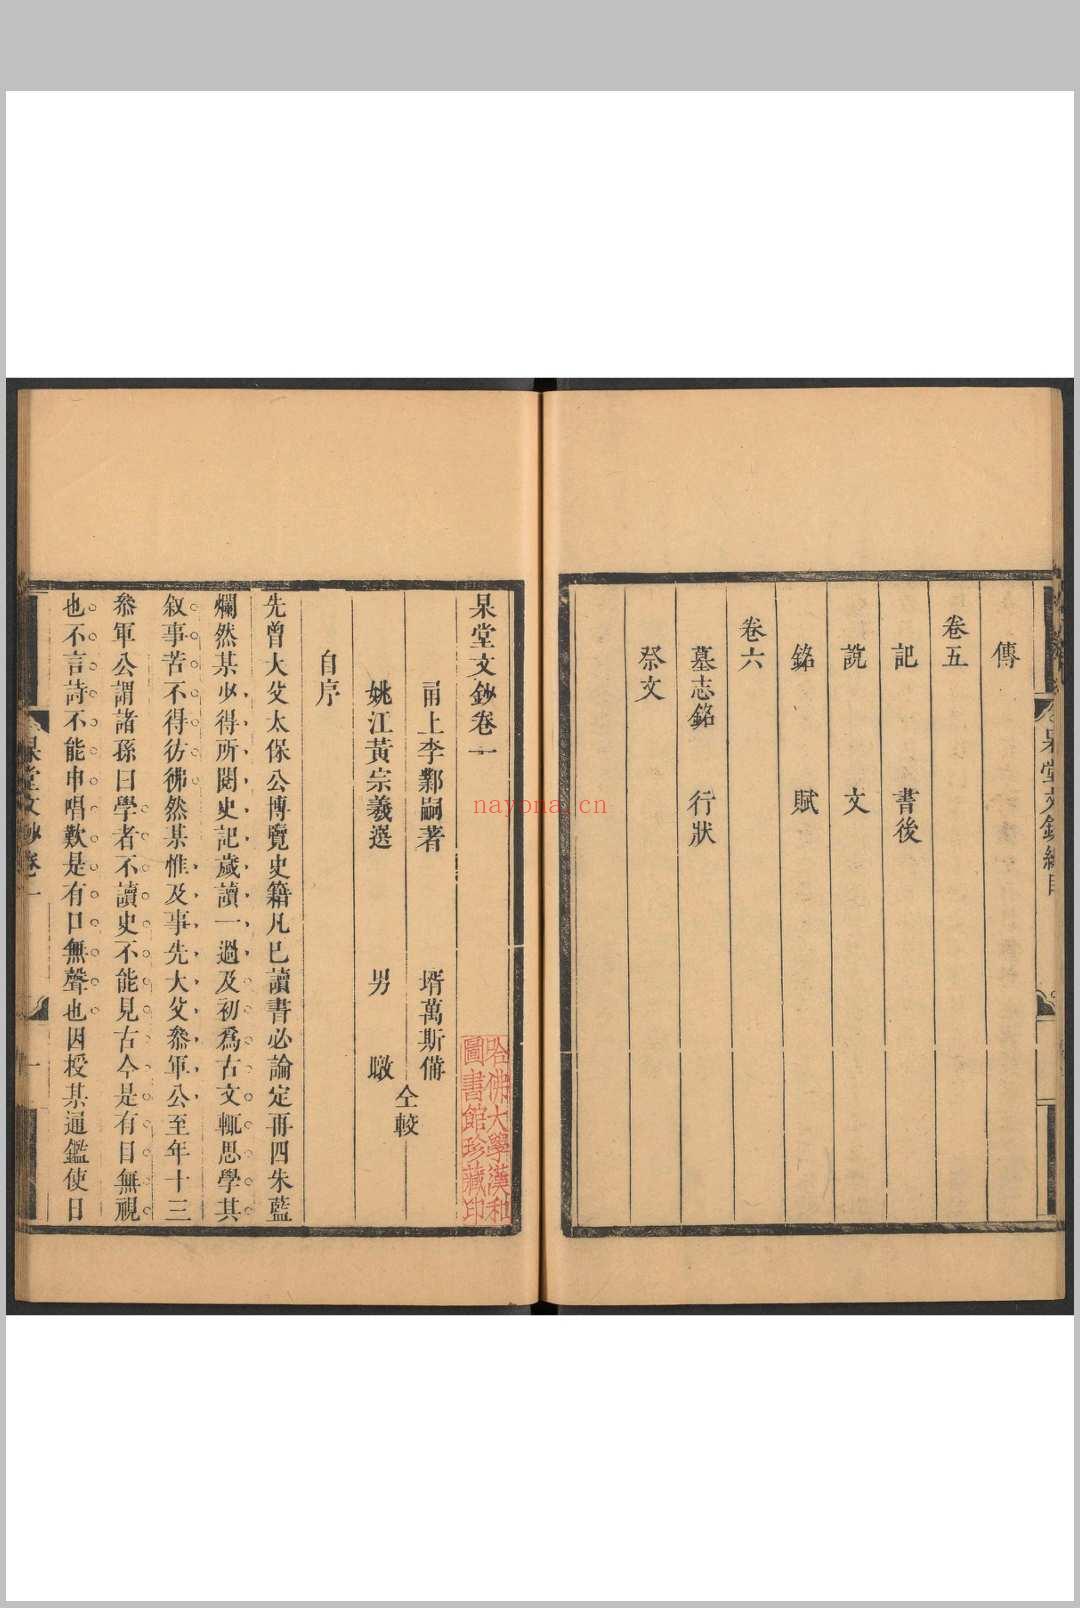 杲堂文鈔總目
傳
卷五
記　書後
說　文
銘　賦
卷六
墓志銘　行狀
祭文
杲堂文鈔卷一
甬上李鄴嗣著　壻萬斯備
仝較
姚江黃宗羲選　男　暾
自序
先曾大父太保公博覽史籍凡已讀書必論定再四朱藍
爛然某少得所閱史記歲讀一過及初爲古文輒思學其
叙事苦不得彷彿然某惟及事先大父叅軍公至年十三
叅軍公謂諸孫曰學者不讀史不能見古今是有目無視
也不言詩不能申唱歎是有口無聲也因授某通鑑使日
杲堂文鈔卷一
一
哈佛大學漢和
圖書館珍藏印
nayona.cn